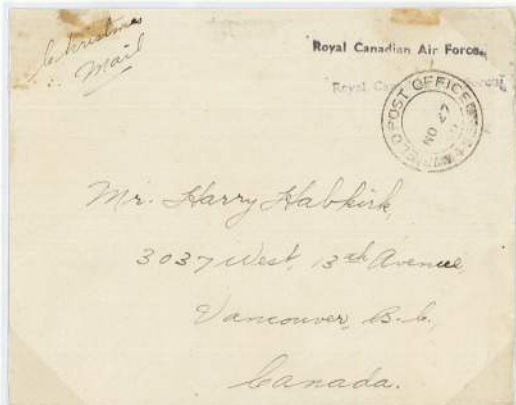 Christmas
Mail
Royal Canadian Air Force.
Royal
POST OFFICE
Mr. Harry Habkirk,
3037 West, 13th Avenue
Vancouver, B.C.,
Canada.